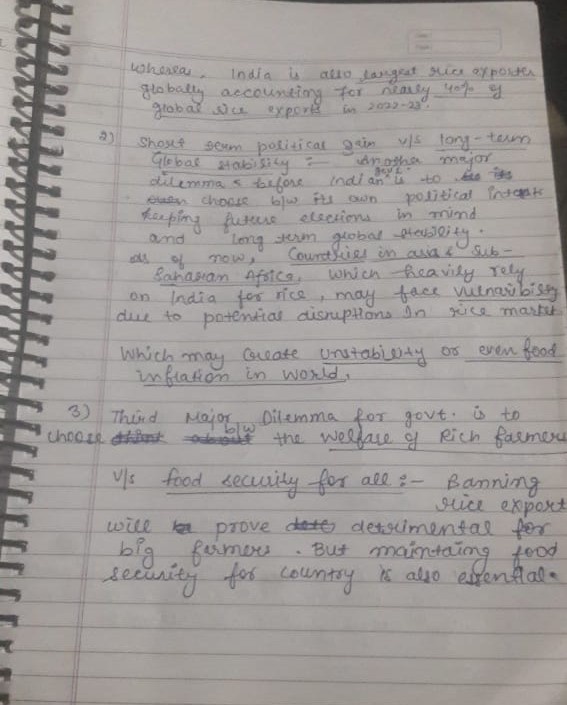 whereas, India is also largest rice exporter
globally accounting for nearly 40% of
global rice exports in 2022-23.
2) Short term political gain v/s long-term
Global stability :- Another major
dilemma before Indian govt. is to
choose b/w its own political interest
keeping future elections in mind
and long term global stability.
As of now, Countries in asia & Sub-
Saharan Africa, which heavily rely
on India for rice, may face vulnaribility
due to potential disruptions in rice market
which may create unstability or even food
inflation in world.
3) Third Major Dilemma for govt. is to
choose b/w the welfare of Rich farmers
v/s food security for all :- Banning
rice export
will prove detrimental for
big farmers. But maintaing food
security for country is also essential.